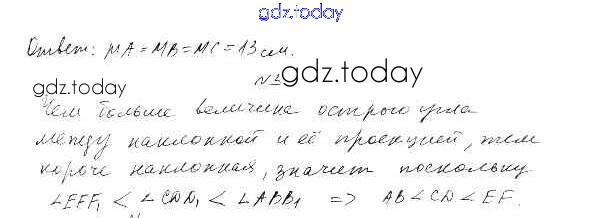 gdz.today
Ответ: MA = MB = MC = 13 см.
gdz.today
№3
gdz.today
Чем больше величина острого угла
между наклонной и её проекцией, тем
короче наклонная, значит поскольку
∠EFF₁ < ∠CDD₁ < ∠ABB₁ => AB < CD < EF.